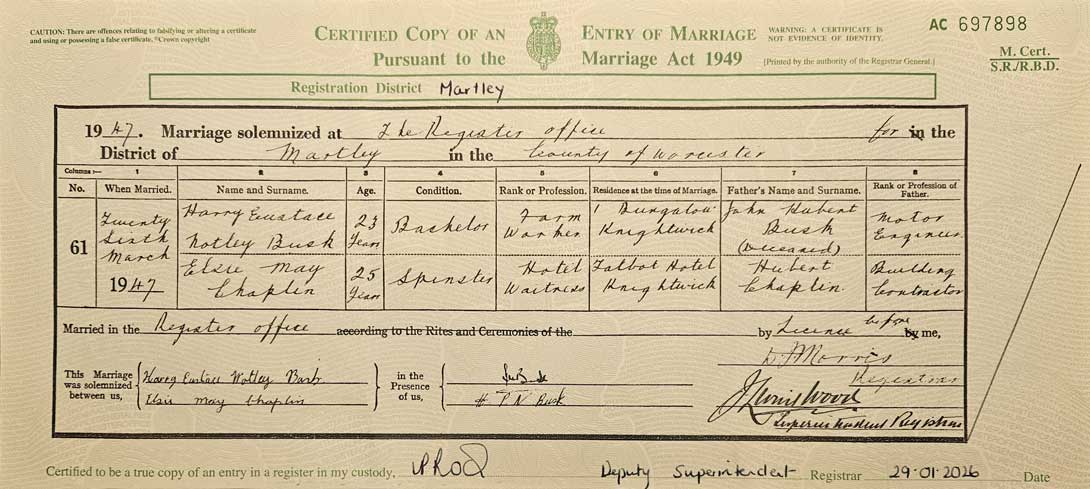 CAUTION: There are offences relating to falsifying or altering a certificate
and using or possessing a false certificate. ©Crown copyright
CERTIFIED COPY OF AN ENTRY OF MARRIAGE
Pursuant to the Marriage Act 1949
WARNING: A CERTIFICATE IS
NOT EVIDENCE OF IDENTITY.
[Printed by the authority of the Registrar General.]
AC 697898
M. Cert.
S.R./R.B.D.
Registration District Martley
1947. Marriage solemnized at The Register office for in the
District of Martley in the County of Worcester
Columns:— 1 2 3 4 5 6 7 8
No. When Married. Name and Surname. Age. Condition. Rank or Profession. Residence at the time of Marriage. Father's Name and Surname. Rank or Profession of Father.
61
Twenty
Sixth
March
1947
Harry Eustace
Notley Busk
23
Years
Bachelor
Farm
Worker
1 Bungalow
Knightwick
John Hubert
Busk
(Deceased)
Motor
Engineer
Elsie May
Chaplin
25
Years
Spinster
Hotel
Waitress
Talbot Hotel
Knightwick
Hubert
Chaplin
Building
Contractor
Married in the Register office according to the Rites and Ceremonies of the by Licence before by me,
This Marriage
was solemnized
between us,
Harry Eustace Notley Busk
Elsie May Chaplin
in the
Presence
of us,
H P N Busk
Morris
Registrar
Wood
Superintendent Registrar
Certified to be a true copy of an entry in a register in my custody, Deputy Superintendent Registrar 29·01·2026 Date